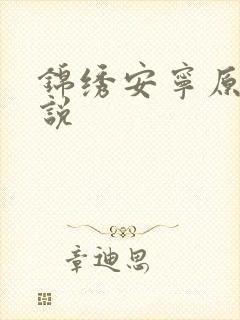 錦绣安寧原
說
章迪思